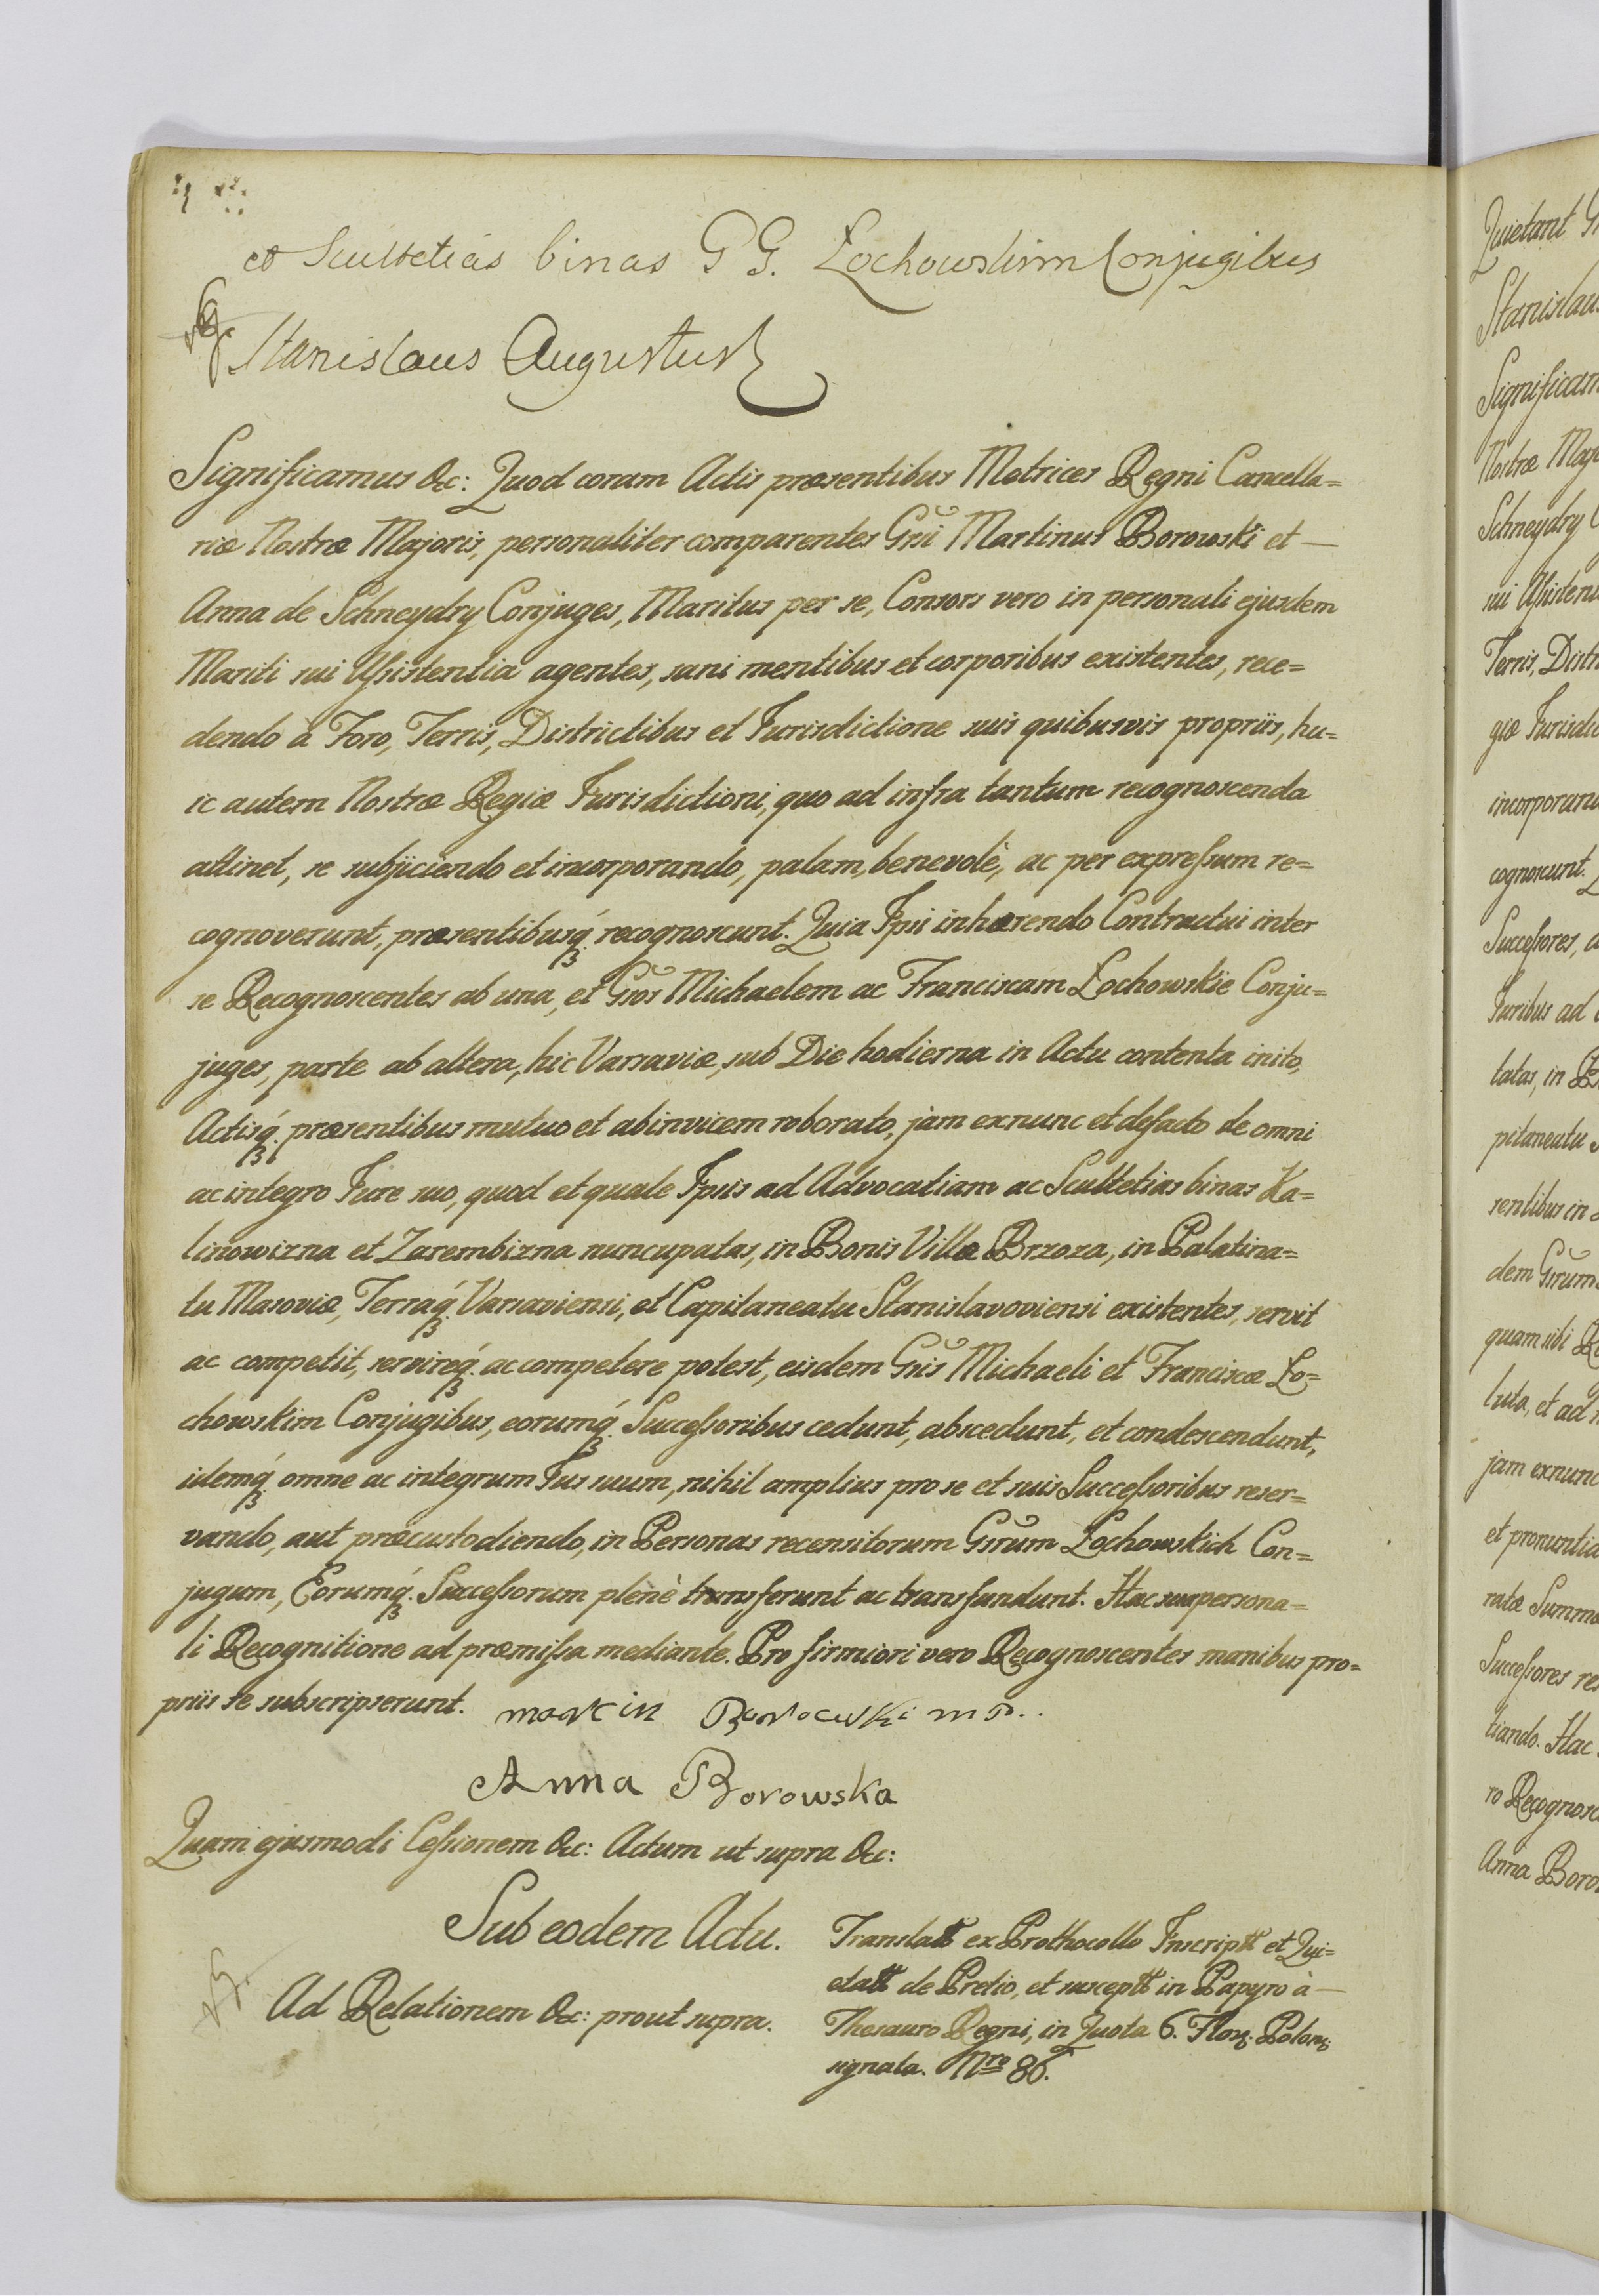 et Scultetias binas G G. Łochowskim Conjugibus
Stanislaus Augustus
Significamus &c: Quod coram Actis præsentibus Metrices Regni Cancella=
riæ Nostræ Majoris, personaliter comparentes Gñsi Martinus Borowski et —
Anna de Schneydry Conjuges, Maritus per se, Consors vero in personali ejusdem
Mariti sui Assistentia agentes, sani mentibus et corporibus existentes, rece=
dendo à Foro, Terris, Districtibus et Jurisdictione suis quibusvis propriis, hu=
ic autem Nostræ Regiæ Jurisdictioni, quo ad infra tantum recognoscenda
attinet, se subjiciendo et incorporando, palam, benevolè, ac per expressum re=
cognoverunt, præsentibusq́ꝫ recognoscunt. Quia Ipsi inhærendo Contractui inter
se Recognoscentes ab una, et Gsos Michaelem ac Franciscam Łochowskie Conju=
juges, parte ab altera, hic Varsaviæ, sub Die hodierna in Actu contenta inito,
Actisq́ꝫ præsentibus mutuo et abinvicem roborato, jam exnunc et defacto de omni
ac integro Jure suo, quod et quale Ipsis ad Advocatiam ac Scultetias binas Ka=
linowizna et Zarembizna nuncupatas, in Bonis Villæ Brzoza, in Palatina=
tu Masoviæ, Terraq́ꝫ Varsaviensi, et Capitaneatu Stanislavoviensi existentes, servit
ac competit, servireq́ꝫ ac competere potest, eisdem Gñsis Michaeli et Franciscæ Ło=
chowskim Conjugibus, eorumq́ꝫ Successoribus cedunt, abscedunt, et condescendunt,
idemq́ꝫ omne ac integrum Jus suum, nihil amplius pro se et suis Successoribus reser=
vando, aut præcustodiendo, in Personas recensitorum Gsrum Łochowskich Con=
jugum, Eorumq́ꝫ Successorum plenè transferunt ac transfundunt. Hac sua persona=
li Recognitione ad præmissa mediante. Pro firmiori vero Recognoscentes manibus pro=
priis se subscripserunt. marcin Borowski mp..
Anna Borowska
Quam ejusmodi Cessionem &c: Actum ut supra &c:
Sub eodem Actu.
Ad Relationem &c: prout supra.
Translatt ex Prothocollo Inscriptt et Qui=
etatt de Pretio, et susceptt in Papyro à —
Thesauro Regni, in Quota 6. Florꝫ Polonꝫ
signata. Nro 86.
Quietant
Stanislau
Significam
Nostræ Maj
Schneydry
sui Assistent
Terris, Distr
giæ Jurisdic
incorporand
cognoscunt.
Successores, a
Juribus ad
tatas, in B
pitaneatu S
sentibus in
dem Gsrum
quam sibi Re
luta, et ad
jam exnunc
et pronuntia
ratæ Summæ
Successores res
tiando. Hac
ro Recognosc
Anna Borow